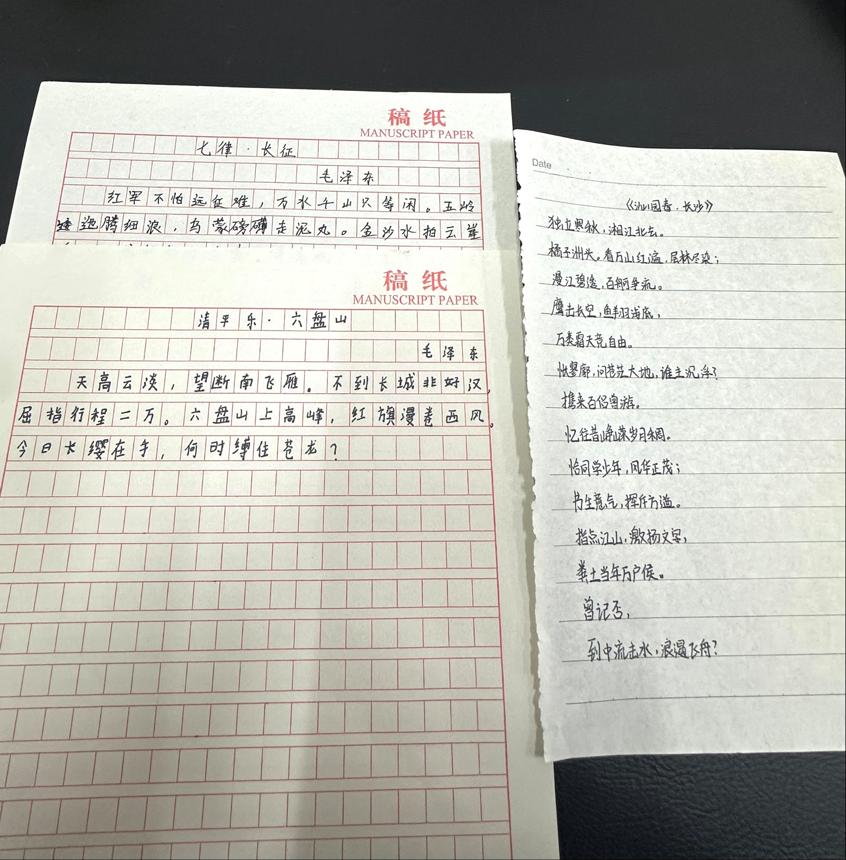 稿纸
MANUSCRIPT PAPER
七律·长征
毛泽东
红军不怕远征难，万水千山只等闲。五岭
逶迤腾细浪，乌蒙磅礴走泥丸。金沙水拍云崖
稿纸
MANUSCRIPT PAPER
清平乐·六盘山
毛泽东
天高云淡，望断南飞雁。不到长城非好汉，
屈指行程二万。六盘山上高峰，红旗漫卷西风。
今日长缨在手，何时缚住苍龙？
Date
《沁园春·长沙》
独立寒秋，湘江北去。
橘子洲头。看万山红遍，层林尽染；
漫江碧透，百舸争流。
鹰击长空，鱼翔浅底，
万类霜天竞自由。
怅寥廓，问苍茫大地，谁主沉浮？
携来百侣曾游。
忆往昔峥嵘岁月稠。
恰同学少年，风华正茂；
书生意气，挥斥方遒。
指点江山，激扬文字，
粪土当年万户侯。
曾记否，
到中流击水，浪遏飞舟？